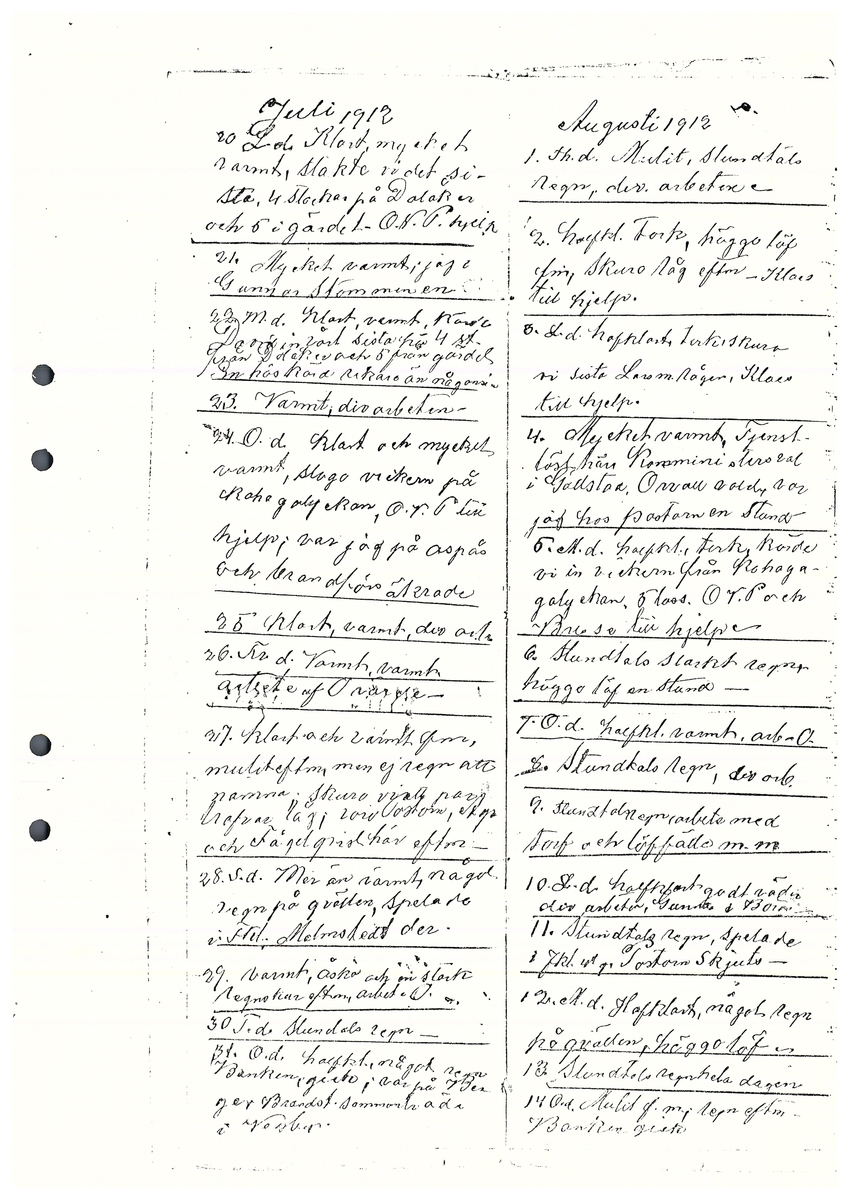 Juli 1912
20 L.d. Klart, mycket
varmt, slakte vi det si-
sta, 4 stackar på Dalåker
och 5 i gärdet - O.V.P. hjelp
21. Mycket varmt, jag i
Gunnar Stommen en
22. M.d. Klart, varmt, körde
vi in vårt sista hö 4 st.
från Dalåker och 5 från gärdet
än någon
23. Varmt, div arbeten -
24. O.d. Klart och mycket
varmt, slogo vickern på
Kohagalyckan, O.V.P till
hjelp; var jag på aspås
och brandförsäkrade
25 Klart, varmt, div arb
26. Fr d. Varmt, varmt
arbete af
27. Klart och varmt fm,
mulit eftm, men ej regn att
nämna; skuro vi
och här eftm -
28. S.d. Mer än varmt, någol
regn på qvällen, spelade
vi Malmstedt der.
29. Varmt, åska och en stark
regnskur eftm, arbet. O.
30 T.d. Stundals regn -
31. O.d. halfkl, något regn
Banken, giste, var på Ber
ger Brandst. sommanträde
i
Augusti 1912
1. Th.d. Mulit, stundtals
regn, div. arbeten
2. halfkl. Tork, höggo löf
fm, skuro råg eftm - Klaes
till hjelp.
3. L.d. halfklart, tork, skuro
vi sista Klaes
till hjelp.
4. Mycket varmt, Tjenst-
löst här, Komministerval
i Gällstad, Orvall vald, var
jag hos pastorn en stund
5. M.d. halfkl., tork, körde
vi in vickern från Kohaga-
galyckan, 5 lass. O.V.P och
till hjelp
6. Stundtals starkt regn,
höggo löf en stund -
7. O.d. halfkl. varmt, arb. O.
8. Stundtals regn, div arb.
9. Stundtals regn, arbete med
torf och löffälle m.m
10. L.d. halfklart godt väder
div arbeten, Gunnar i
11. Stundtals regn, spelade
i Tostorn Skjuts -
12. M.d. Halfklart, något regn
på qvällen, höggo löf
13. Stundtals regn hela dagen
14 O.d. Mulit f.m, regn eftm -
Banken giste